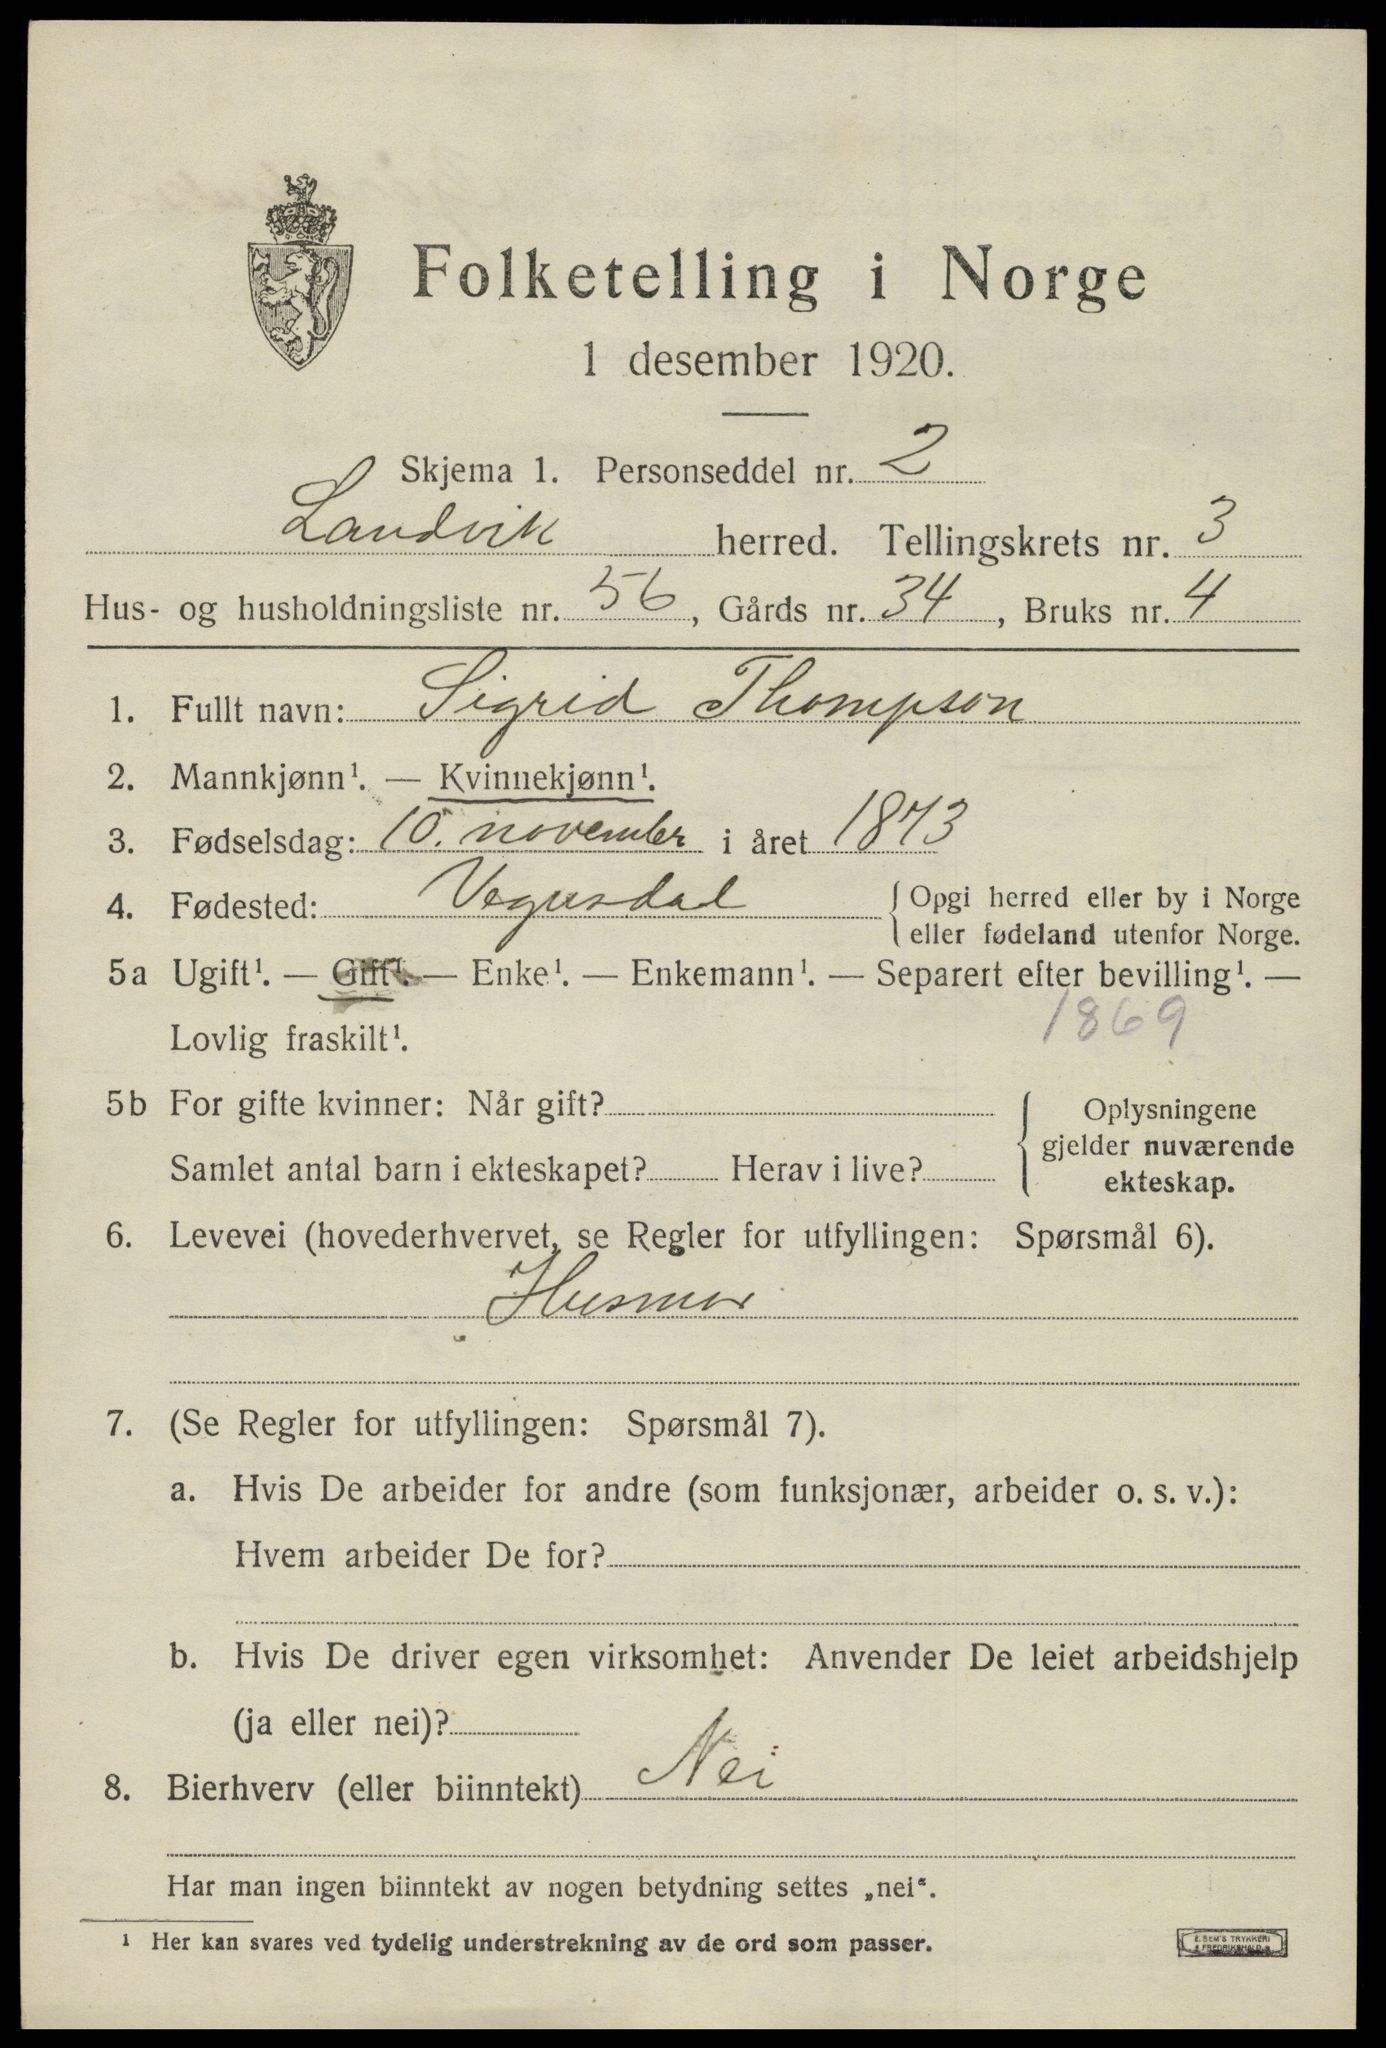 Folketelling i Norge
1 desember 1920.
Skjema 1. Personseddel nr. 2
Landvik herred. Tellingskrets nr. 3
Hus- og husholdningsliste nr. 56, Gårds nr. 34, Bruks nr. 4
1. Fullt navn: Sigrid Thompson
2. Mannkjønn¹. — Kvinnekjønn¹.
3. Fødselsdag: 10. november i året 1873
4. Fødested: Vegusdal {Opgi herred eller by i Norge
eller fødeland utenfor Norge.
5a Ugift¹. — Gift¹. — Enke¹. — Enkemann¹. — Separert efter bevilling¹. —
Lovlig fraskilt¹. 1869
5b For gifte kvinner: Når gift? { Oplysningene
gjelder nuværende
Samlet antal barn i ekteskapet? Herav i live?
ekteskap.
6. Levevei (hovederhvervet, se Regler for utfyllingen: Spørsmål 6).
Husmor
7. (Se Regler for utfyllingen: Spørsmål 7).
a. Hvis De arbeider for andre (som funksjonær, arbeider o. s. v.):
Hvem arbeider De for?
b. Hvis De driver egen virksomhet: Anvender De leiet arbeidshjelp
(ja eller nei)?
8. Bierhverv (eller biinntekt) Nei
Har man ingen biinntekt av nogen betydning settes „nei“.
¹ Her kan svares ved tydelig understrekning av de ord som passer.
E. SEM'S TRYKKERI
FREDRIKSHALD